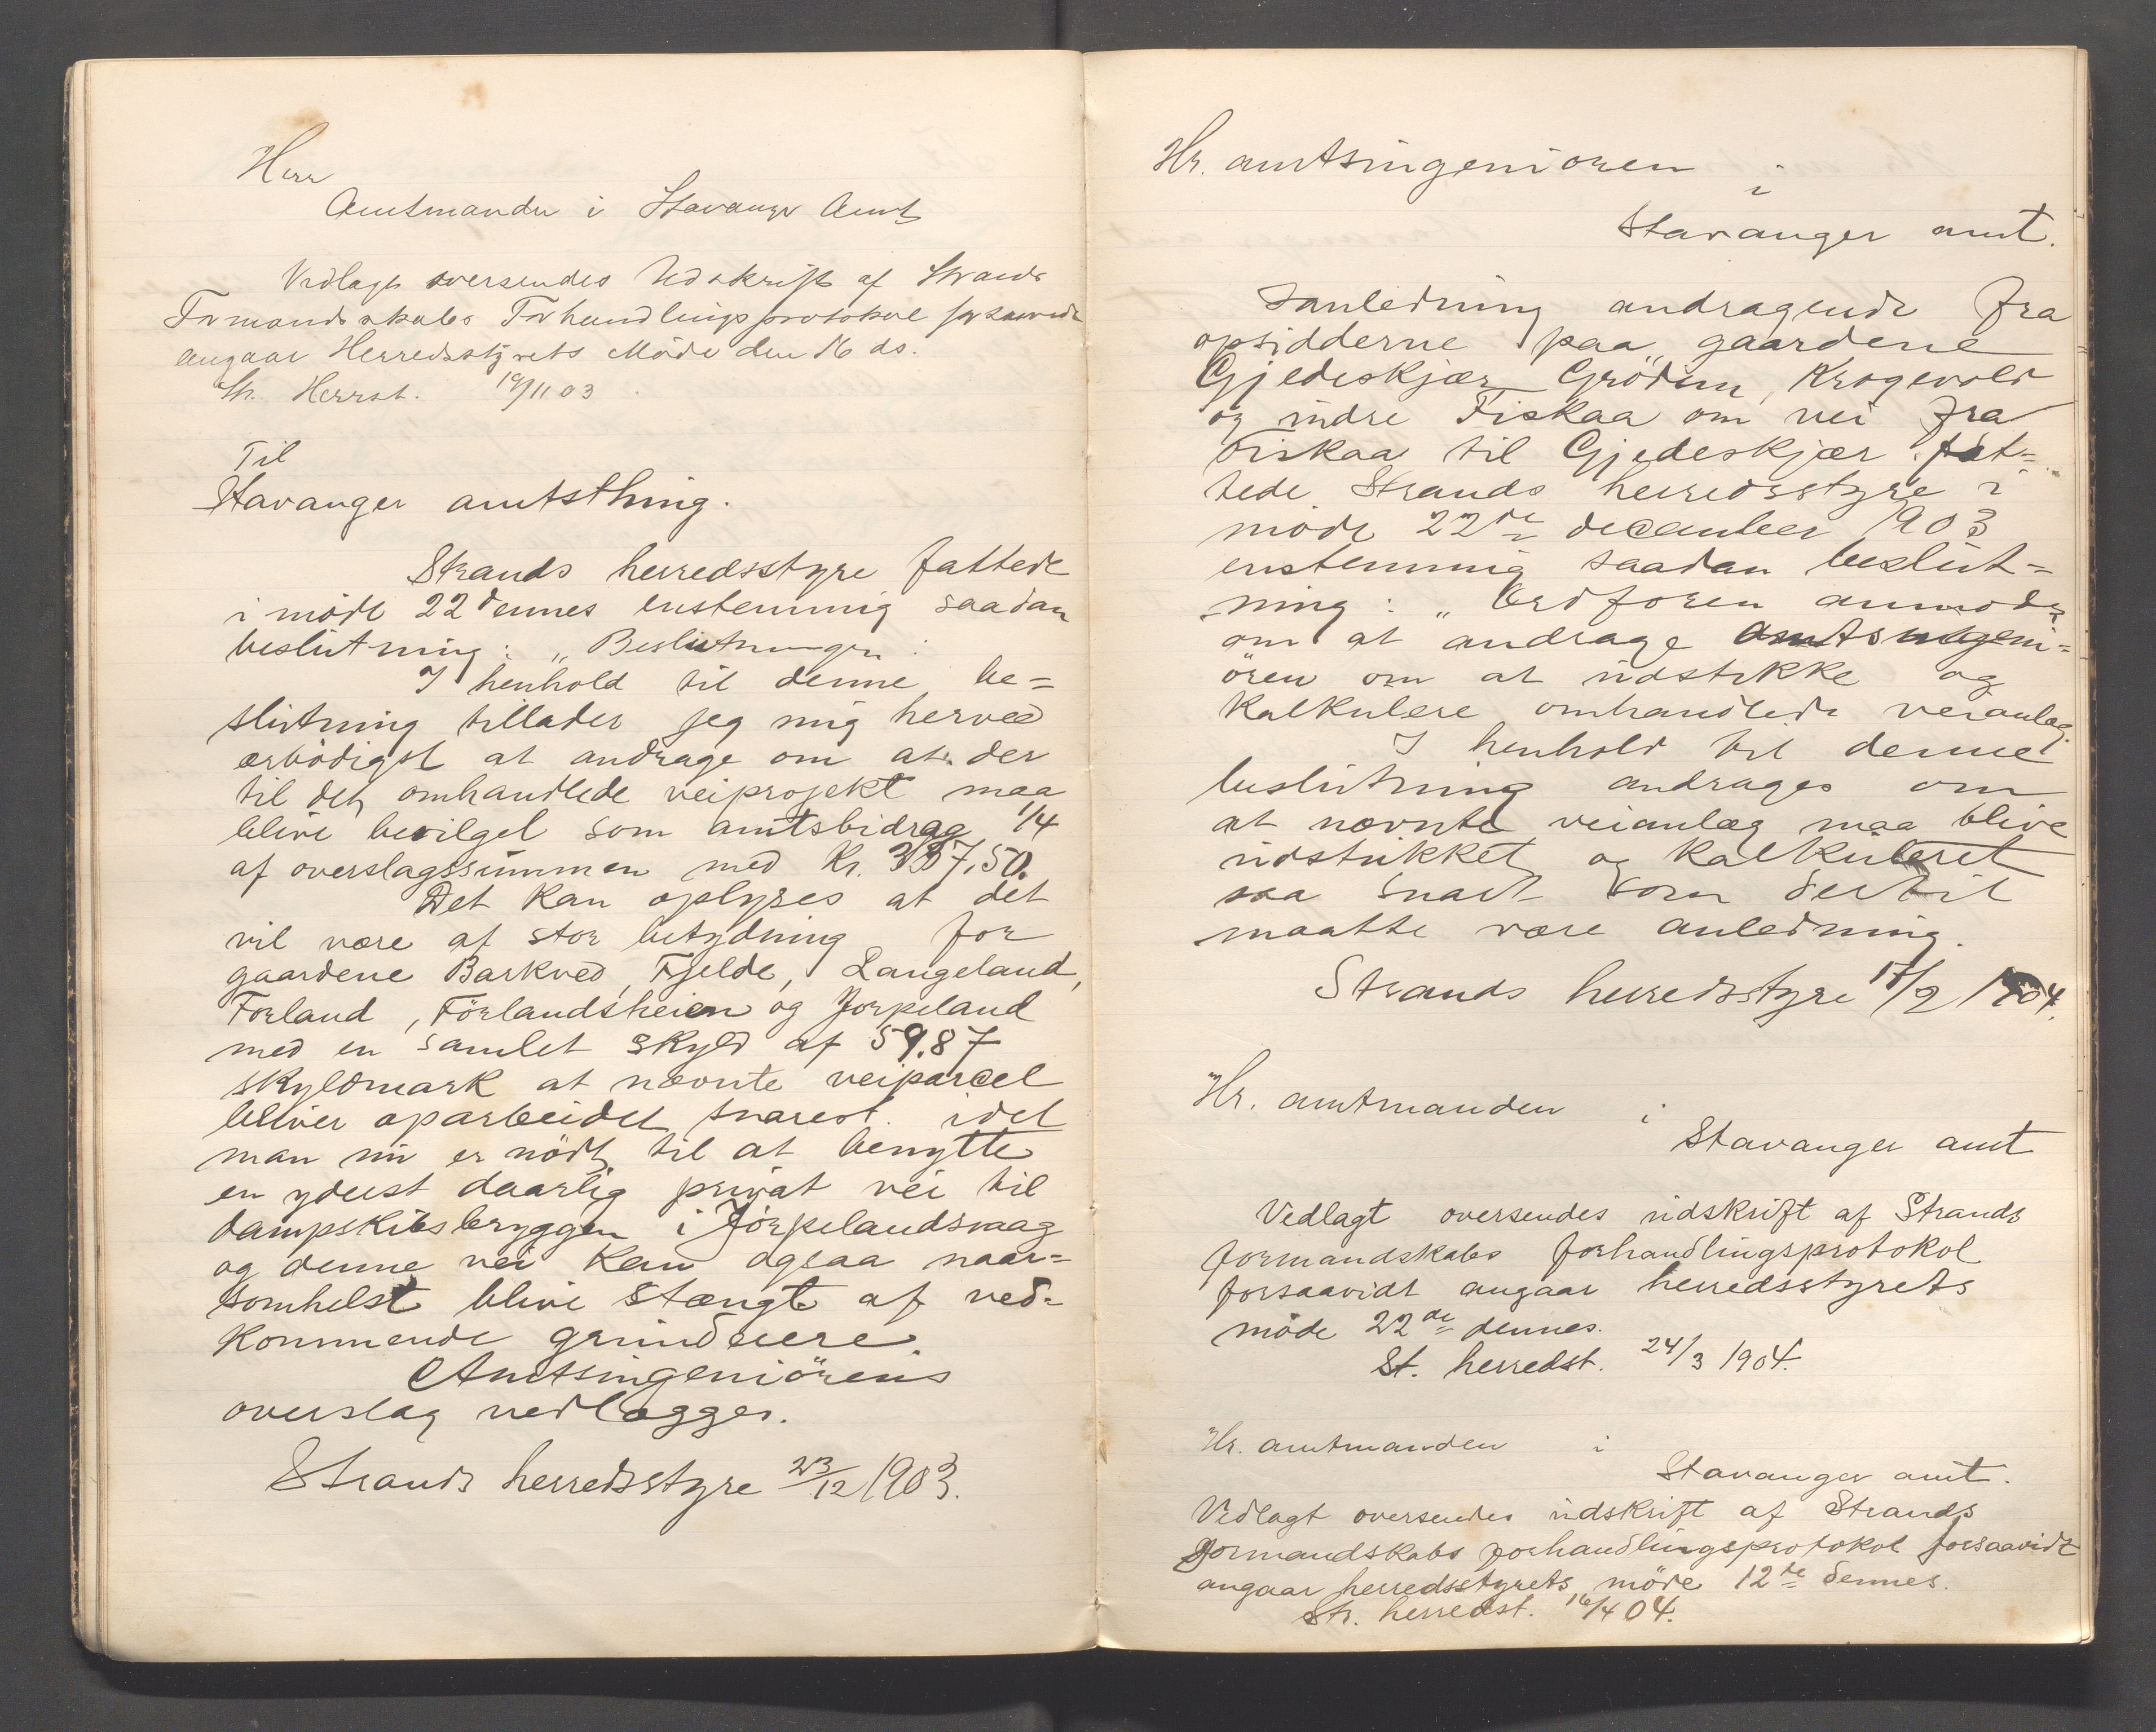 Herr
Amtmanden i Stavanger Amt
Vedlagt oversendes Udskrift af Strands
Formandskabs Forhandlingsprotokol forsaavidt
angaar Herredsstyrets Möde den 16 ds.
St. Herrst. 19/11 03
Til
Stavanger amtsthing.
Strands herredsstyre fattede
i möde 22 dennes enstemmig saadan
beslutning: „Beslutningen:
I henhold til denne be=
slutning tillader jeg mig herved
ærbödigst at andrage om at der
til det omhandlede veiprojekt maa
blive bevilget som amtsbidrag 1/4
af overslagssummen med Kr. 337,50.
Det kan oplyses at det
vil være af stor betydning for
gaardene Barkved, Fjelde, Langeland,
Forland, Förlandsheien og Jorpeland
med en samlet skyld af 59.87
skyldmark at nævnte veiparcel
bliver oparbeidet snarest. idet
man nu er nödt til at benytte
en yderst daarlig privat vei til
dampskibsbryggen i Jörpelandsvaag
og denne vei kan ogsaa naar=
somhelst blive stængt af ved=
kommende grundeiere.
Amtsingeniörens
overslag vedlægges.
Strands herredsstyre 23/12 1903.
Hr. amtsingeniören
i
Stavanger amt.
I anledning andragende fra
opsidderne paa gaardene
Gjedeskjær, Grödem, Krogevold
og indre Fiskaa om vei fra
Fiskaa til Gjedeskjær fat=
tede Strands herredsstyre i
möde 22de december 1903
enstemmig saadan beslut=
ning: „Ordforen anmodes
om at andrage amtsingeni=
ören om at udstikke og
kalkulere omhandlede veianlæg.
I henhold til denne
beslutning andrages om
at nævnte veianlæg maa blive
udstukket og kalkuleret
saa snart som dertil
maatte være anledning.
Strands herredsstyre 17/2 1904.
Hr. amtmanden
i
Stavanger amt
Vedlagt oversendes udskrift af Strands
formandskabs forhandlingsprotokol
forsaavidt angaar herredsstyrets
möde 22de dennes.
St. herredst. 24/3 1904.
Hr. amtmanden i
Stavanger amt.
Vedlagt oversendes udskrift af Strands
formandskabs forhandlingsprotokol forsaavidt
angaar herredsstyrets möde 12te dennes.
Str. herredst. 16/4 04.